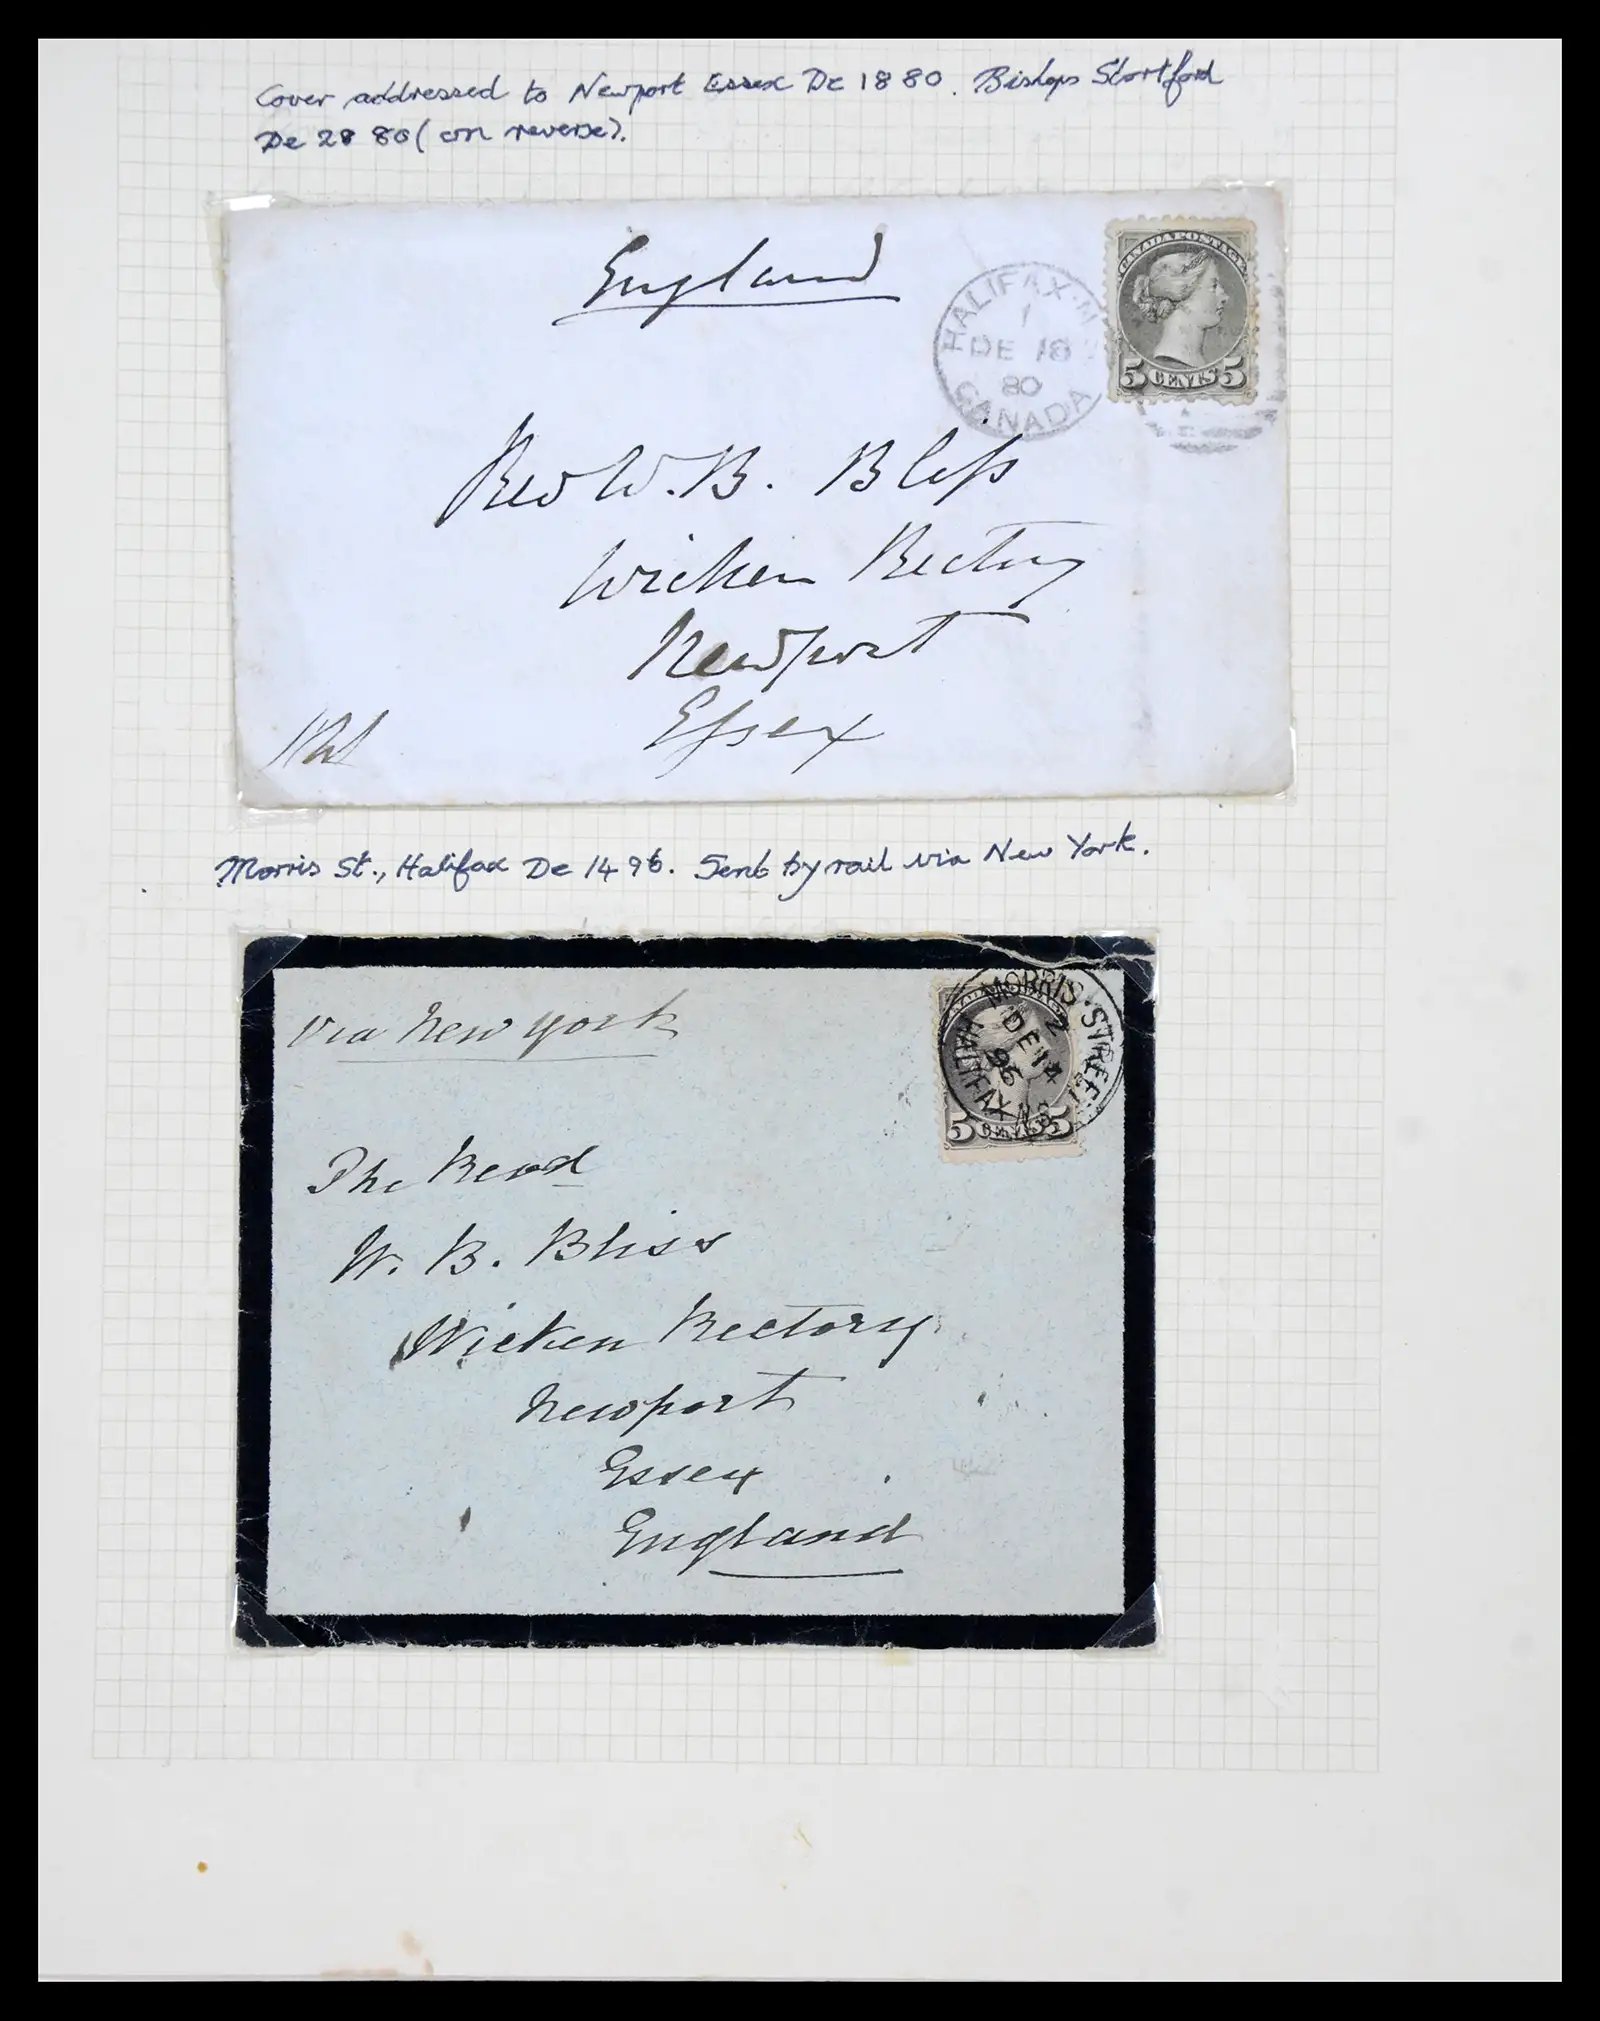 Cover addressed to Newport Essex De 18 80. Bishops Stortford
De 28 80 (on reverse).
England
CANADA POSTAGE
5 CENTS 5
HALIFAX·N
1
DE 18
80
CANADA
Rev W. B. Bliſs
Wicken Rectory
Newport
Eſsex
Morris St., Halifax De 14 96. Sent by rail via New York.
via New York
MORRIS·STREET
2
DE 14
96
HALIFAX N.S.
5 CENTS 5
The Revd
W. B. Bliss
Wicken Rectory
Newport
Essex
England